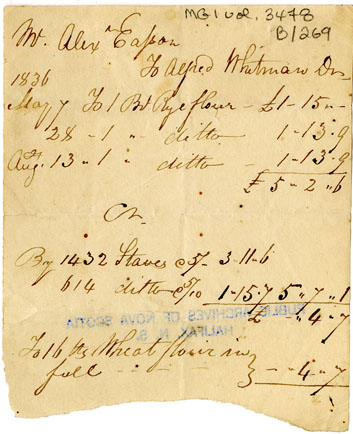 MG 1 vol. 3478
B/269
Mr. Alexn Easson
To Alfred Whitman Dr
1836
May 7 To 1 Bl Rye flour - £1-15"-
28 - 1 " ditto 1-13-9
Augt. 13 " 1 " ditto 1-13-9
£ 5 - 2 " 6
Cr.
By 1432 Staves @ 5/- 3-11-6
614 ditto @ 5/10 1-15-7 5 " 7 " 1
£ " 4 - 7
PUBLIC ARCHIVES OF NOVA SCOTIA
HALIFAX N. S.
To 16 lbs Wheat flour in
full - - - } - 4 - 7